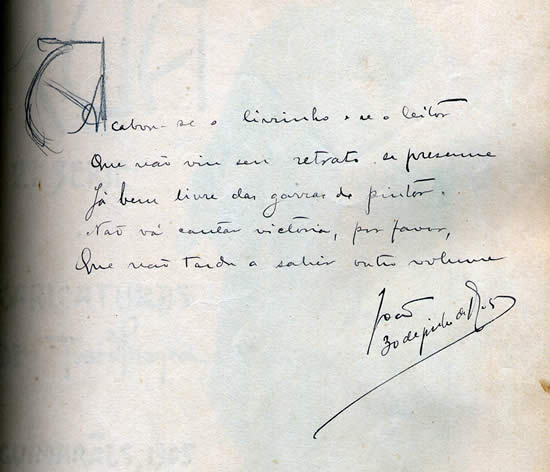 Acabou-se o livrinho e se o leitor
Que não viu seu retrato se presume
Já bem livre das garras do pintor.
Não vá cantar victoria, por favor,
Que não tarda a sahir outro volume
João
de pinho